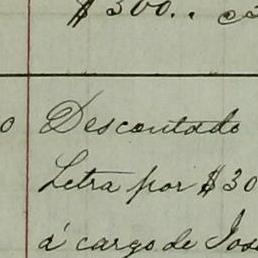 $300..
0 Descontado
Letra por $30
á cargo de Jos